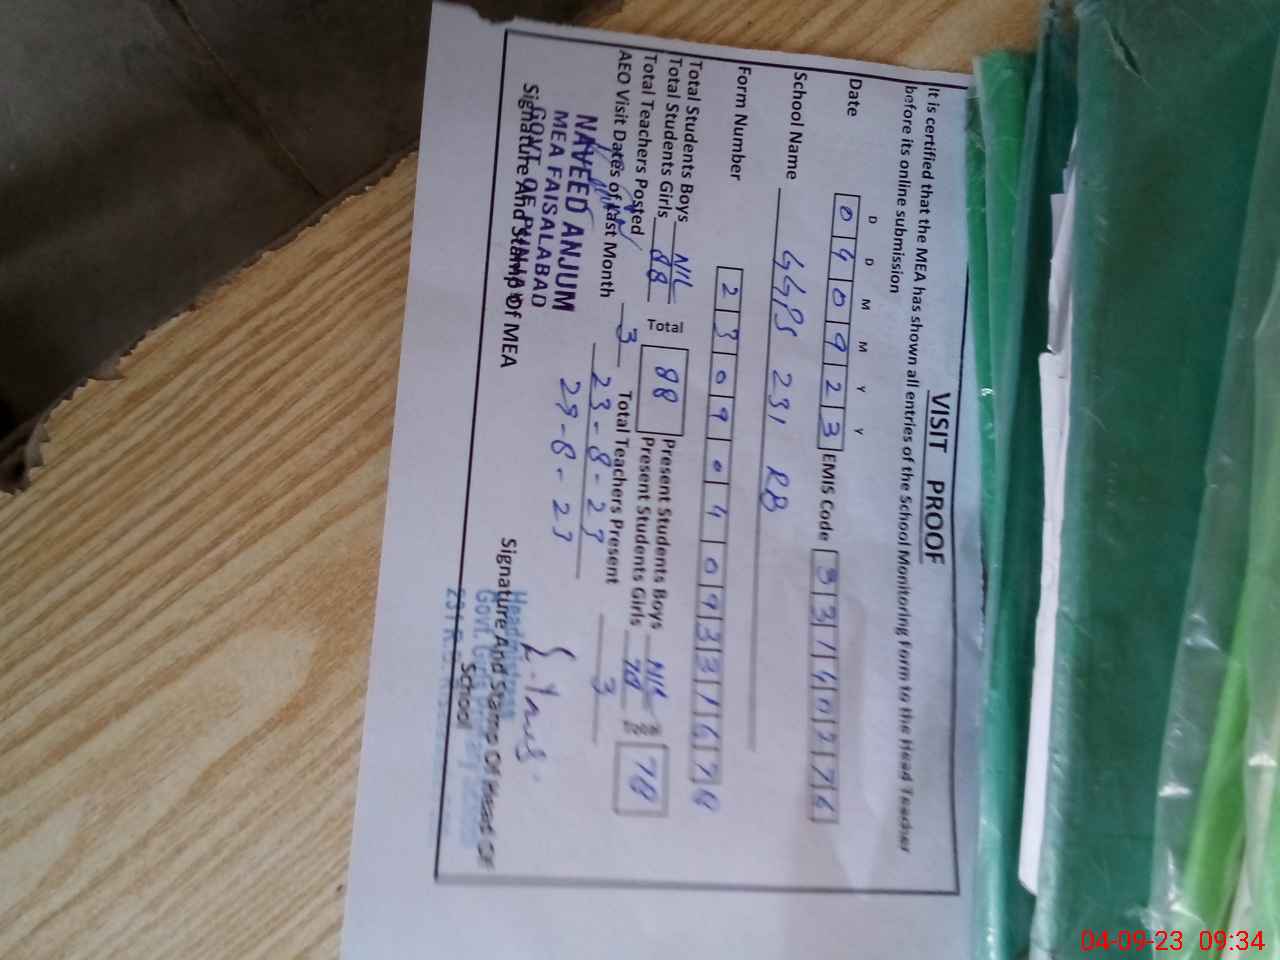 VISIT PROOF
It is certified that the MEA has shown all entries of the School Monitoring Form to the Head Teacher
before its online submission
D D M M Y Y
Date 040923 EMIS Code 33140276
School Name GGPS 231 RB
Form Number 2309040933167
Total Students Boys NIL Total 88 Present Students Boys NIL
Total Students Girls 88 Present Students Girls 70 70
Total Teachers Posted 3 Total Teachers Present 3
AEO Visit Dates of Last Month 23-8-23
28-8-23
NAVEED ANJUM
MEA FAISALABAD
GOVT. OF PUNJAB
Signature And Stamp Of MEA
Signature And Stamp Of Head Of
School
Headmistress
Govt. Girls
231 R.B.
04-09-23 09:34